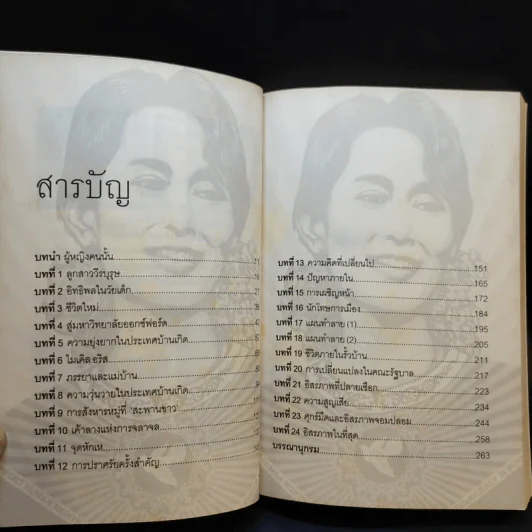 สารบัญ
บทนำ ผู้หญิงคนนั้น
บทที่ 1 ลูกสาววีรบุรุษ
บทที่ 2 อิทธิพลในวัยเด็ก
บทที่ 3 ชีวิตใหม่
บทที่ 4 สู่มหาวิทยาลัยออกซ์ฟอร์ด
บทที่ 5 ความยุ่งยากในประเทศบ้านเกิด
บทที่ 6 ไมเคิล อริส
บทที่ 7 ภรรยาและแม่บ้าน
บทที่ 8 ความวุ่นวายในประเทศบ้านเกิด
บทที่ 9 การสังหารหมู่ที่ 'สะพานขาว'
บทที่ 10 เค้าลางแห่งการจลาจล
บทที่ 11 จุดหักเห
บทที่ 12 การปราศรัยครั้งสำคัญ
บทที่ 13 ความคิดที่เปลี่ยนไป 151
บทที่ 14 ปัญหาภายใน 165
บทที่ 15 การเผชิญหน้า 172
บทที่ 16 นักโทษการเมือง 184
บทที่ 17 แผนทำลาย (1) 195
บทที่ 18 แผนทำลาย (2) 205
บทที่ 19 ชีวิตภายในรั้วบ้าน 211
บทที่ 20 การเปลี่ยนแปลงในคณะรัฐบาล 217
บทที่ 21 อิสรภาพที่ปลายเชือก 223
บทที่ 22 ความสูญเสีย 234
บทที่ 23 ศุกร์มืดและอิสรภาพจอมปลอม 244
บทที่ 24 อิสรภาพในที่สุด 258
บรรณานุกรม 263